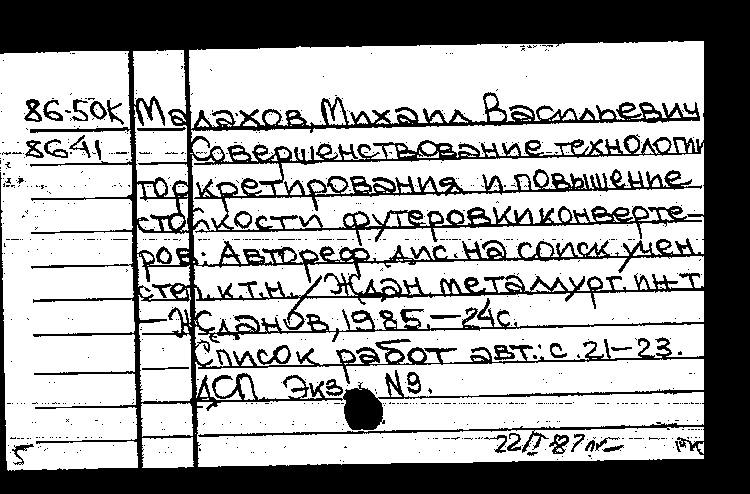 86-50К Малахов, Михаил Васильевич
8641 Совершенствование технологии
торкретирования и повышение
стойкости футеровки конверте-
ров: Автореф. дис. на соиск. учен.
степ. к.т.н. / Ждан. металлург. ин-т.
— Жданов, 1985. — 24с.
Список работ авт.: с. 21–23.
ДСП. Экз. N9.
22/I 87
5